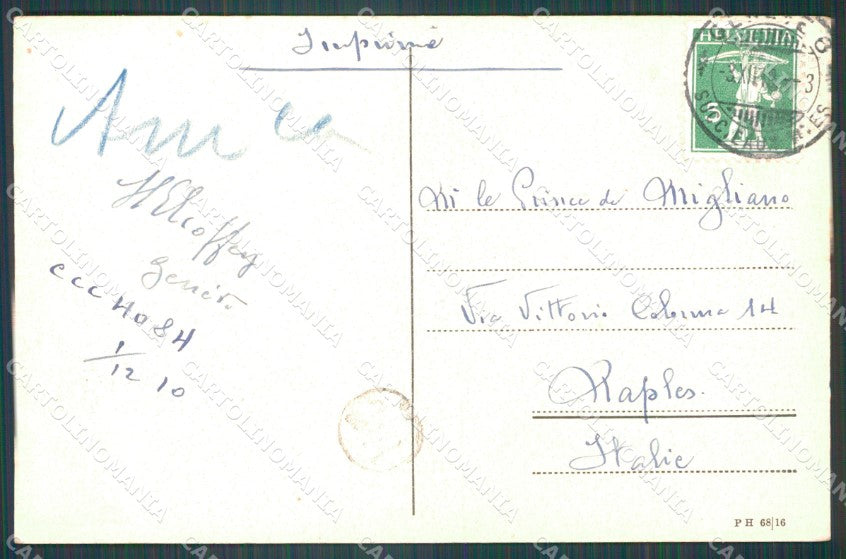 Imprimé
Genève
ccc 4084
1/12 10
le Prince de Migliano
Via Vittoria Colonna 14
Naples.
Italie
PH 68|16
CARTOLINOMANIA